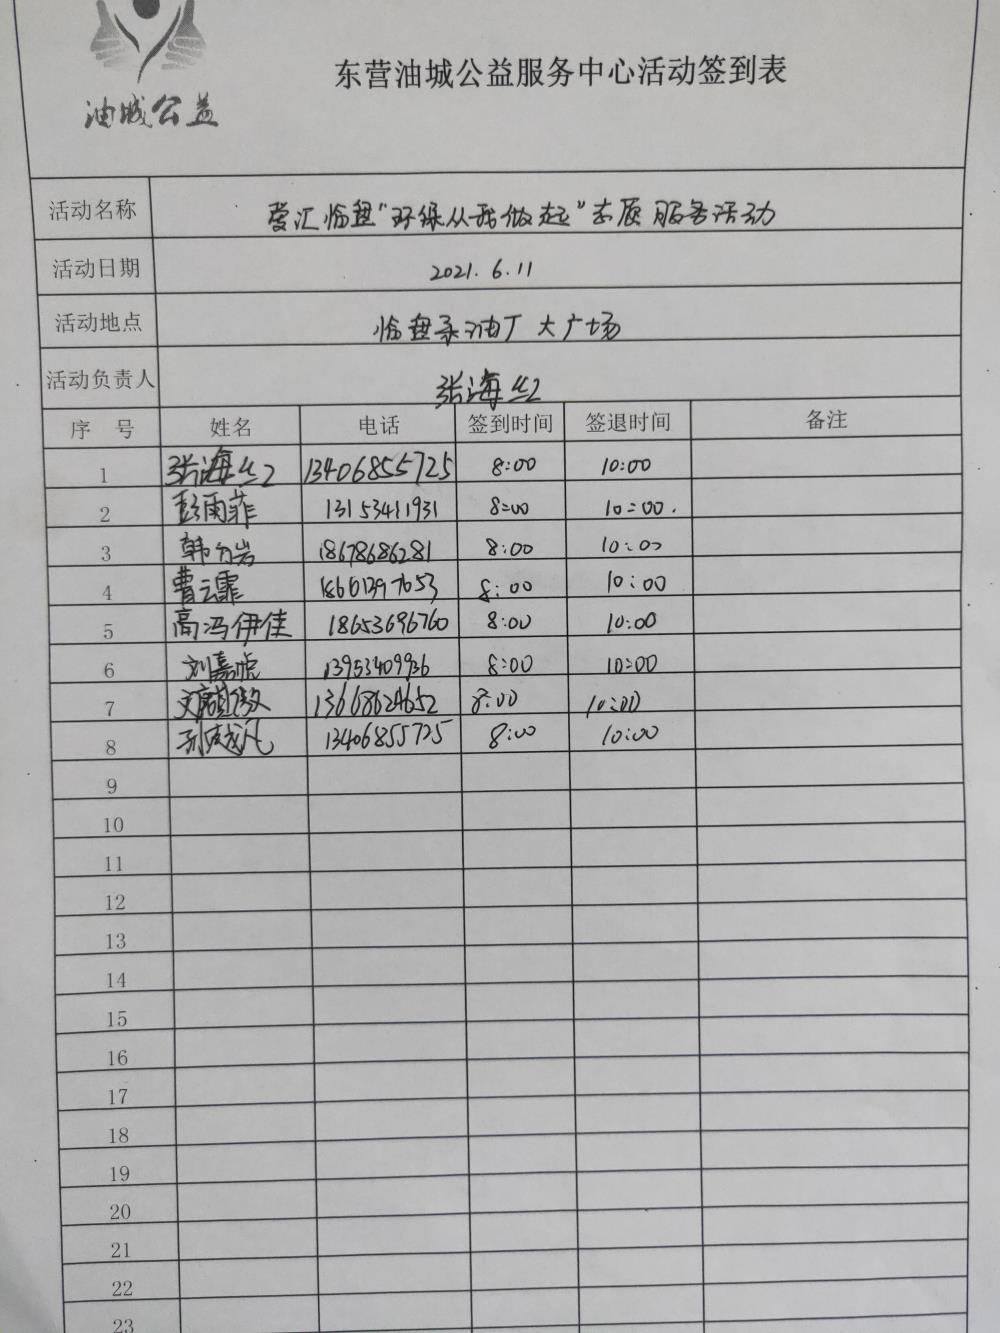 油城公益
东营油城公益服务中心活动签到表
活动名称 爱汇临盘“环保从我做起”志愿服务活动
活动日期 2021.6.11
活动地点 临盘采油厂大广场
活动负责人 张海红
序 号 姓名 电话 签到时间 签退时间 备注
1 张海红 13406855725 8:00 10:00
2 彭雨菲 13153411931 8:00 10:00.
3 韩 岩 18678686281 8:00 10:00
4 曹云霏 18661397653 8:00 10:00
5 高冯伊佳 18653696760 8:00 10:00
6 刘嘉 13953409936 8:00 10:00
7 13668624652 8:00 10:00
8 13406855725 8:00 10:00
9
10
11
12
13
14
15
16
17
18
19
20
21
22
23